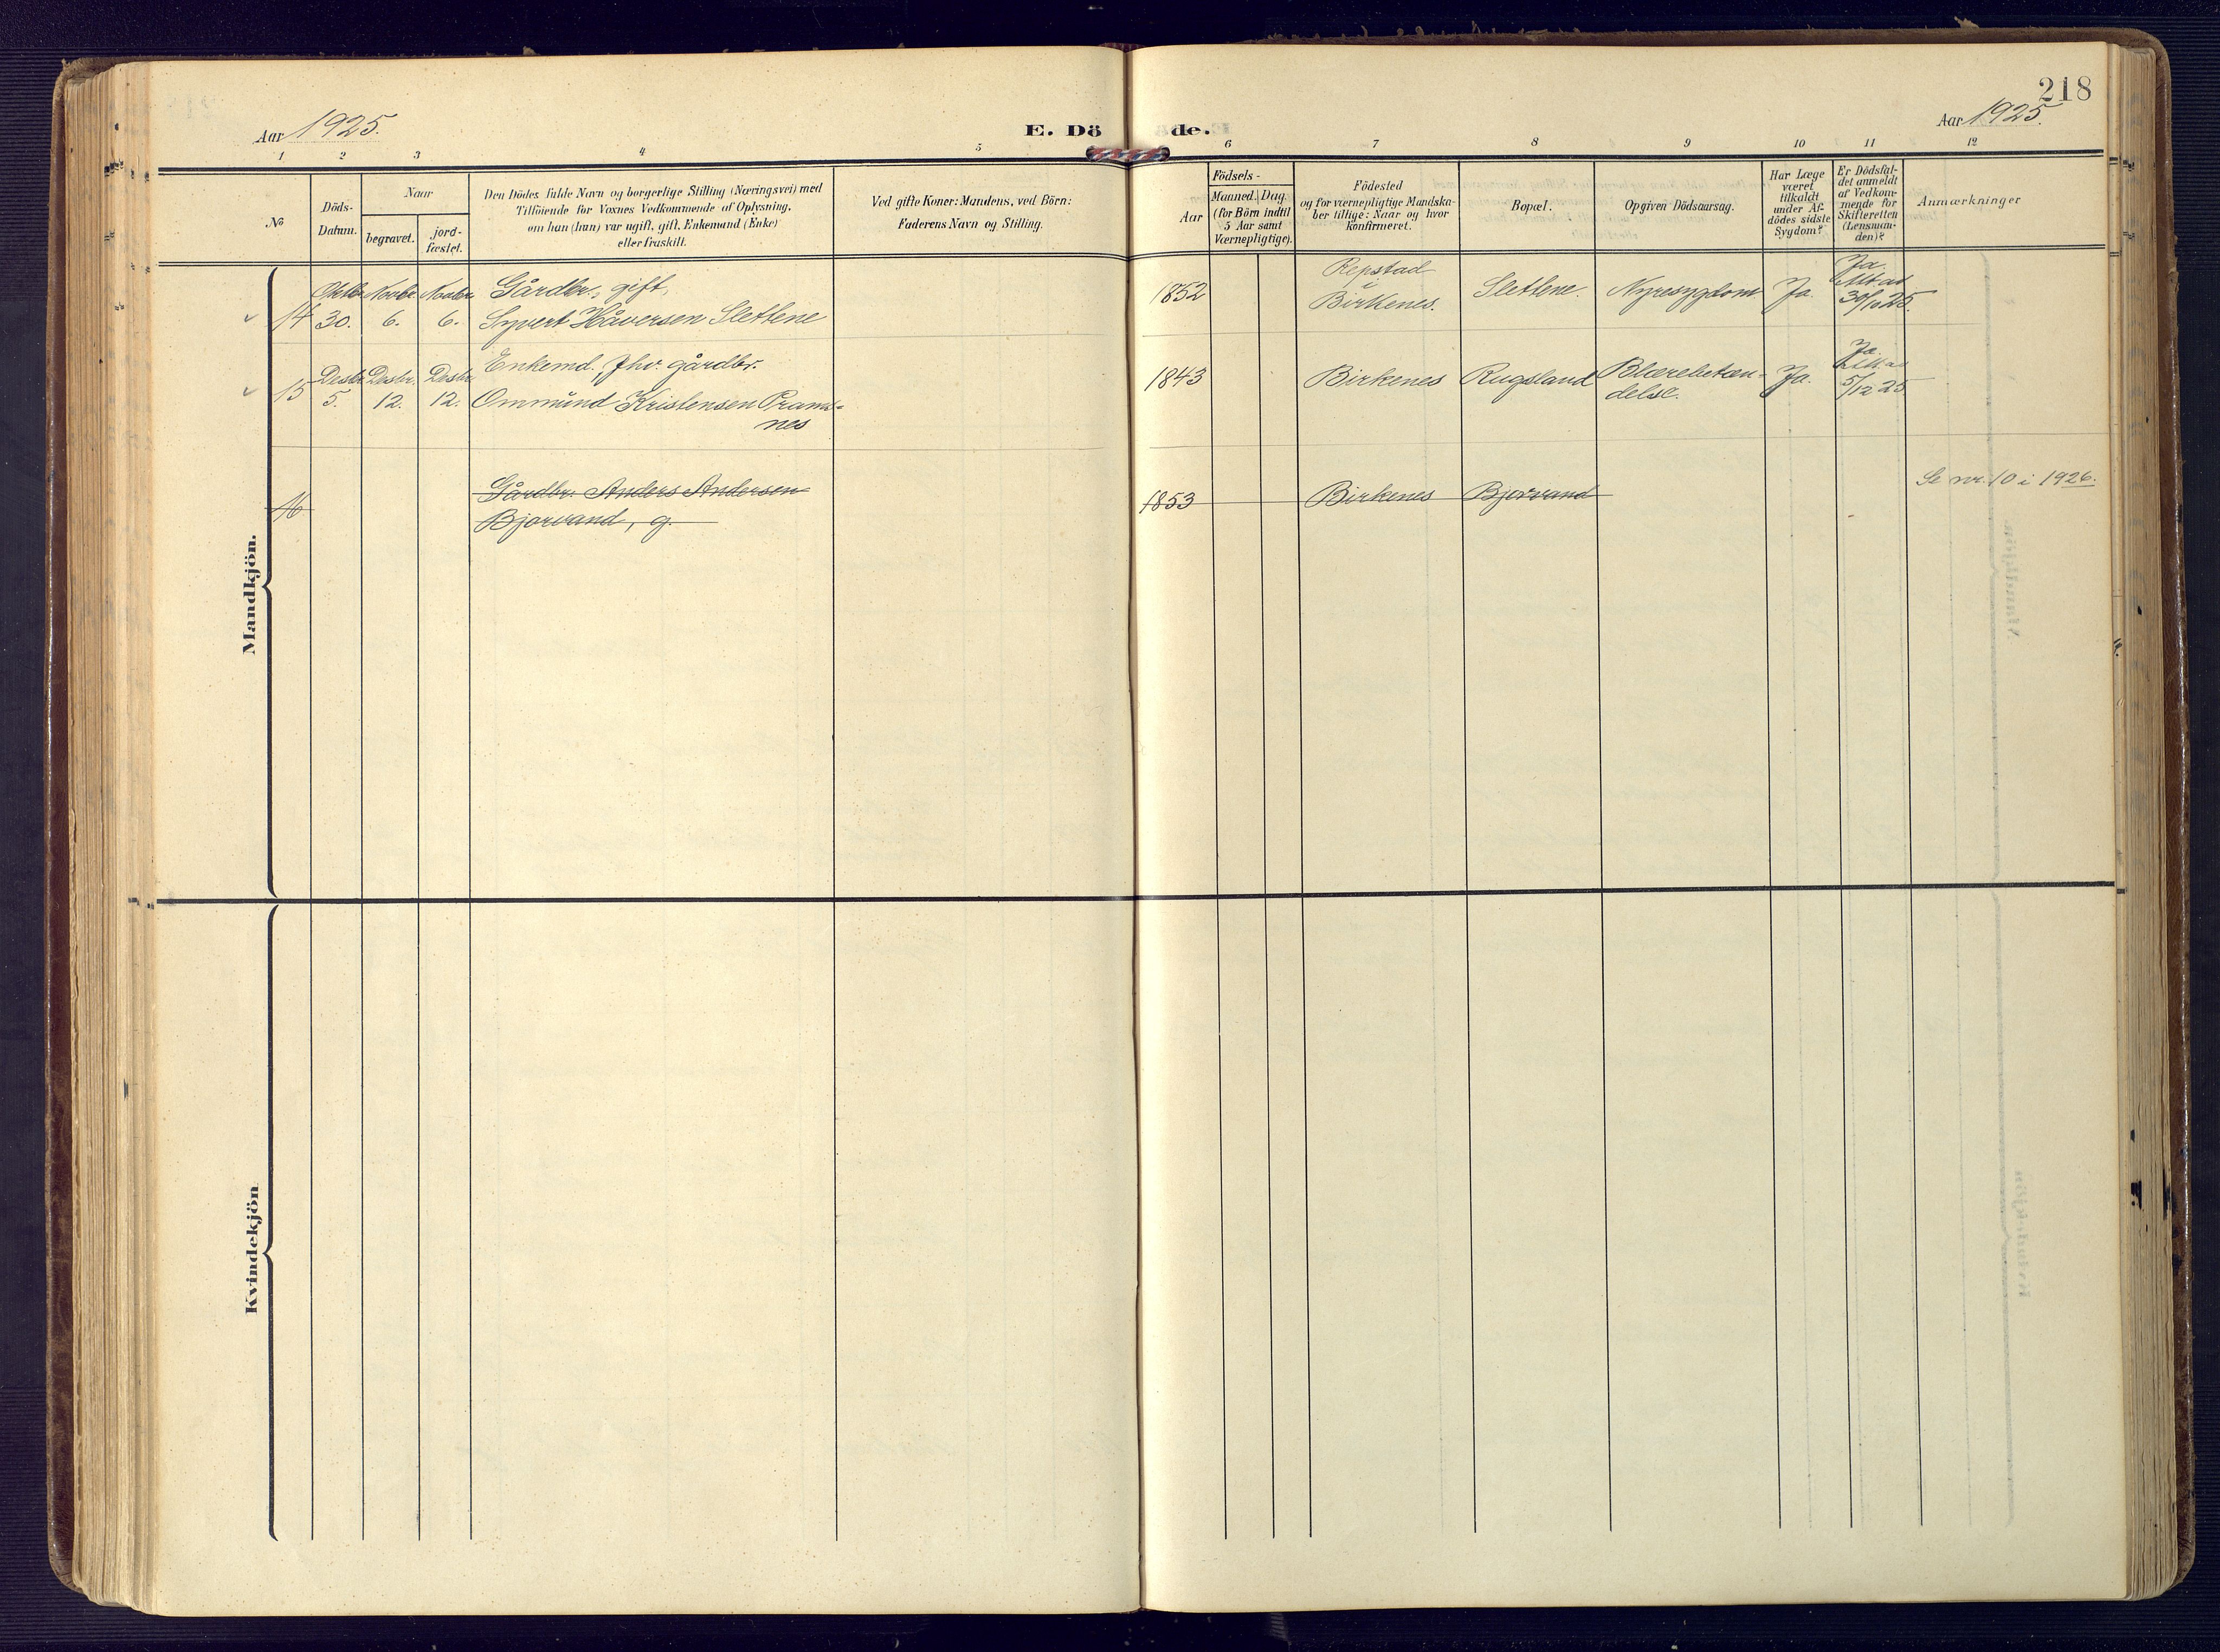 218
Aar 1925.
E. Dö
de.
Aar 1925.
1 2 3 4 5
6 7 8 9 10 11 12
No
Döds-
Datum.
Naar
begravet.
jord-
fæstet.
Den Dödes fulde Navn og borgerlige Stilling (Næringsvei) med
Tilföiende for Voxnes Vedkommende af Oplysning,
om han (hun) var ugift, gift, Enkemand (Enke)
eller fraskilt.
Ved gifte Koner: Mandens, ved Börn:
Faderens Navn og Stilling.
Födsels-
Aar
Maaned. Dag.
(for Börn indtil
5 Aar samt
Værnepligtige).
Födested
og for værnepligtige Mandska-
ber tillige: Naar og hvor
konfirmeret.
Bopæl.
Opgiven Dödsaarsag.
Har Læge
været
tilkaldt
under Af-
dödes sidste
Sygdom?
Er Dödsfal-
det anmeldt
af Vedkom-
mende for
Skifteretten
(Lensman-
den)?
Anmærkninger
Mandkjön.
14
Oktbr.
30.
Novbr.
6.
Novbr.
6.
Gårdbr., gift,
Syvert Håversen Slettene
1852
Repstad
Birkenes.
Slettene.
Nyresygdom
Ja.
Ja.
Att. av
30/10 25.
15
Desbr.
5.
Desbr.
12.
Desbr.
12.
Enkemd. fhv. gårdbr.
Ommund Kristensen Prams-
nes
1843
Birkenes
Rugsland
Blærebetæn-
delse.
Ja.
Ja.
Att. av
5/12 25
16
Gårdbr. Anders Andersen
Bjorvand, g.
1853
Birkenes
Bjorvand
Se nr. 10 i 1926.
Kvindekjön